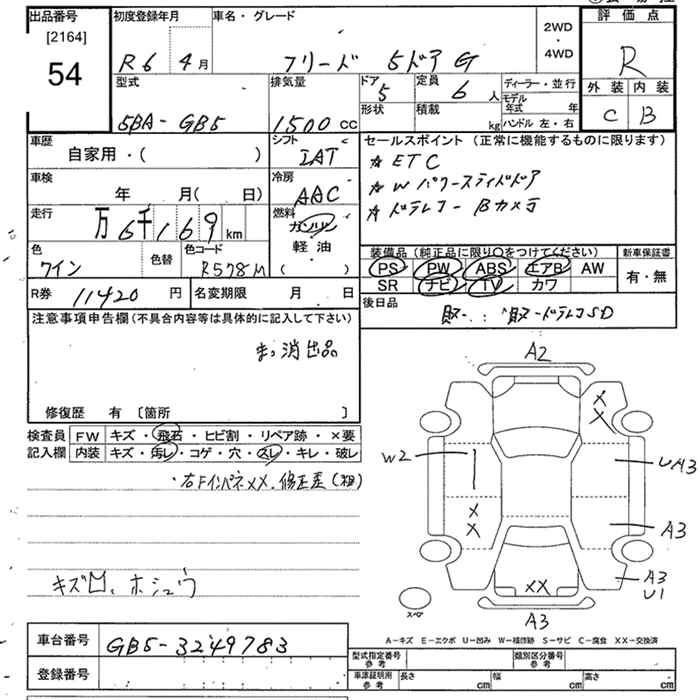 出品番号
[2164]
54
初度登録年月
R6 4月
車名・グレード
フリード 5ドア G
2WD
・
4WD
評価点
R
外装 内装
C B
型式
5BA-GB5
排気量
1500 cc
ドア 5
形状
定員 6 人
積載 kg
ディーラー・並行
モデル年式 年
ハンドル 左・右
車歴
自家用・( )
シフト
IAT
車検
年 月( 日)
冷房
AAC
走行
万6千169 km
燃料
ガソリン
軽油
( )
色
ワイン
色替
色コード
R578M
R券 11420 円
名変期限 月 日
セールスポイント(正常に機能するものに限ります)
ETC
Wパワースライドドア
ドラレコー Bカメラ
装備品(純正品に限り○をつけてください)
PS PW ABS エアB AW
SR ナビ TV カワ
新車保証書
有・無
後日品
取ー: 取ードラレコSD
注意事項申告欄(不具合内容等は具体的に記入して下さい)
消出品
修復歴 有 [箇所 ]
検査員
記入欄
FW キズ・飛石・ヒビ割・リペア跡・×要
内装 キズ・汚レ・コゲ・穴・スレ・キレ・破レ
・右FインパネXX、修正歪(補)
キズ凹、ホシュウ
A2
XX
W2
UA3
XX
A3
A3
U1
XX
A3
スペア
A−キズ E−エクボ U−凹み W−補修跡 S−サビ C−腐食 XX−交換済
車台番号 GB5-3249783
登録番号
型式指定番号
参考
類別区分番号
参考
車庫証明用
参考
長さ cm 幅 cm 高さ cm